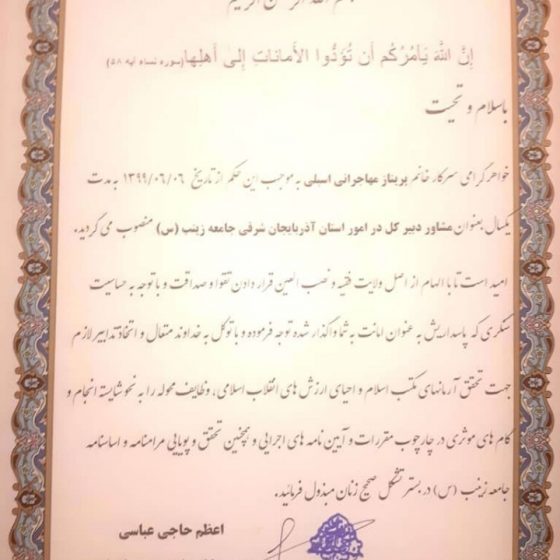 بسم الله الرحمن الرحیم
إنَّ اللّهَ یَأمُرُکُم أن تُؤَدُّوا الأماناتِ إلیٰ أهلِها (سوره نساء آیه ۵۸)
باسلام و تحیت
خواهر گرامی سرکار خانم پریناز مهاجرانی اسبلی به موجب این حکم از تاریخ ۱۳۹۹/۰۶/۰۶ به مدت
یکسال بعنوان مشاور دبیر کل در امور استان آذربایجان شرقی جامعه زینب (س) منصوب می گردید.
امید است تا با الهام از اصل ولایت فقیه و نصب العین قرار دادن تقوا و صداقت و با توجه به حساسیت
سنگری که پاسداریش به عنوان امانت به شما واگذار شده توجه فرموده و با توکل به خداوند متعال و اتخاذ تدابیر لازم
جهت تحقق آرمانهای مکتب اسلام و احیای ارزش های انقلاب اسلامی، وظایف محوله را به نحو شایسته انجام و
گام های موثری در چارچوب مقررات و آیین نامه های اجرایی و همچنین تحقق و پویایی مرامنامه و اساسنامه
جامعه زینب (س) در بستر تشکل صحیح زنان مبذول فرمائید.
اعظم حاجی عباسی